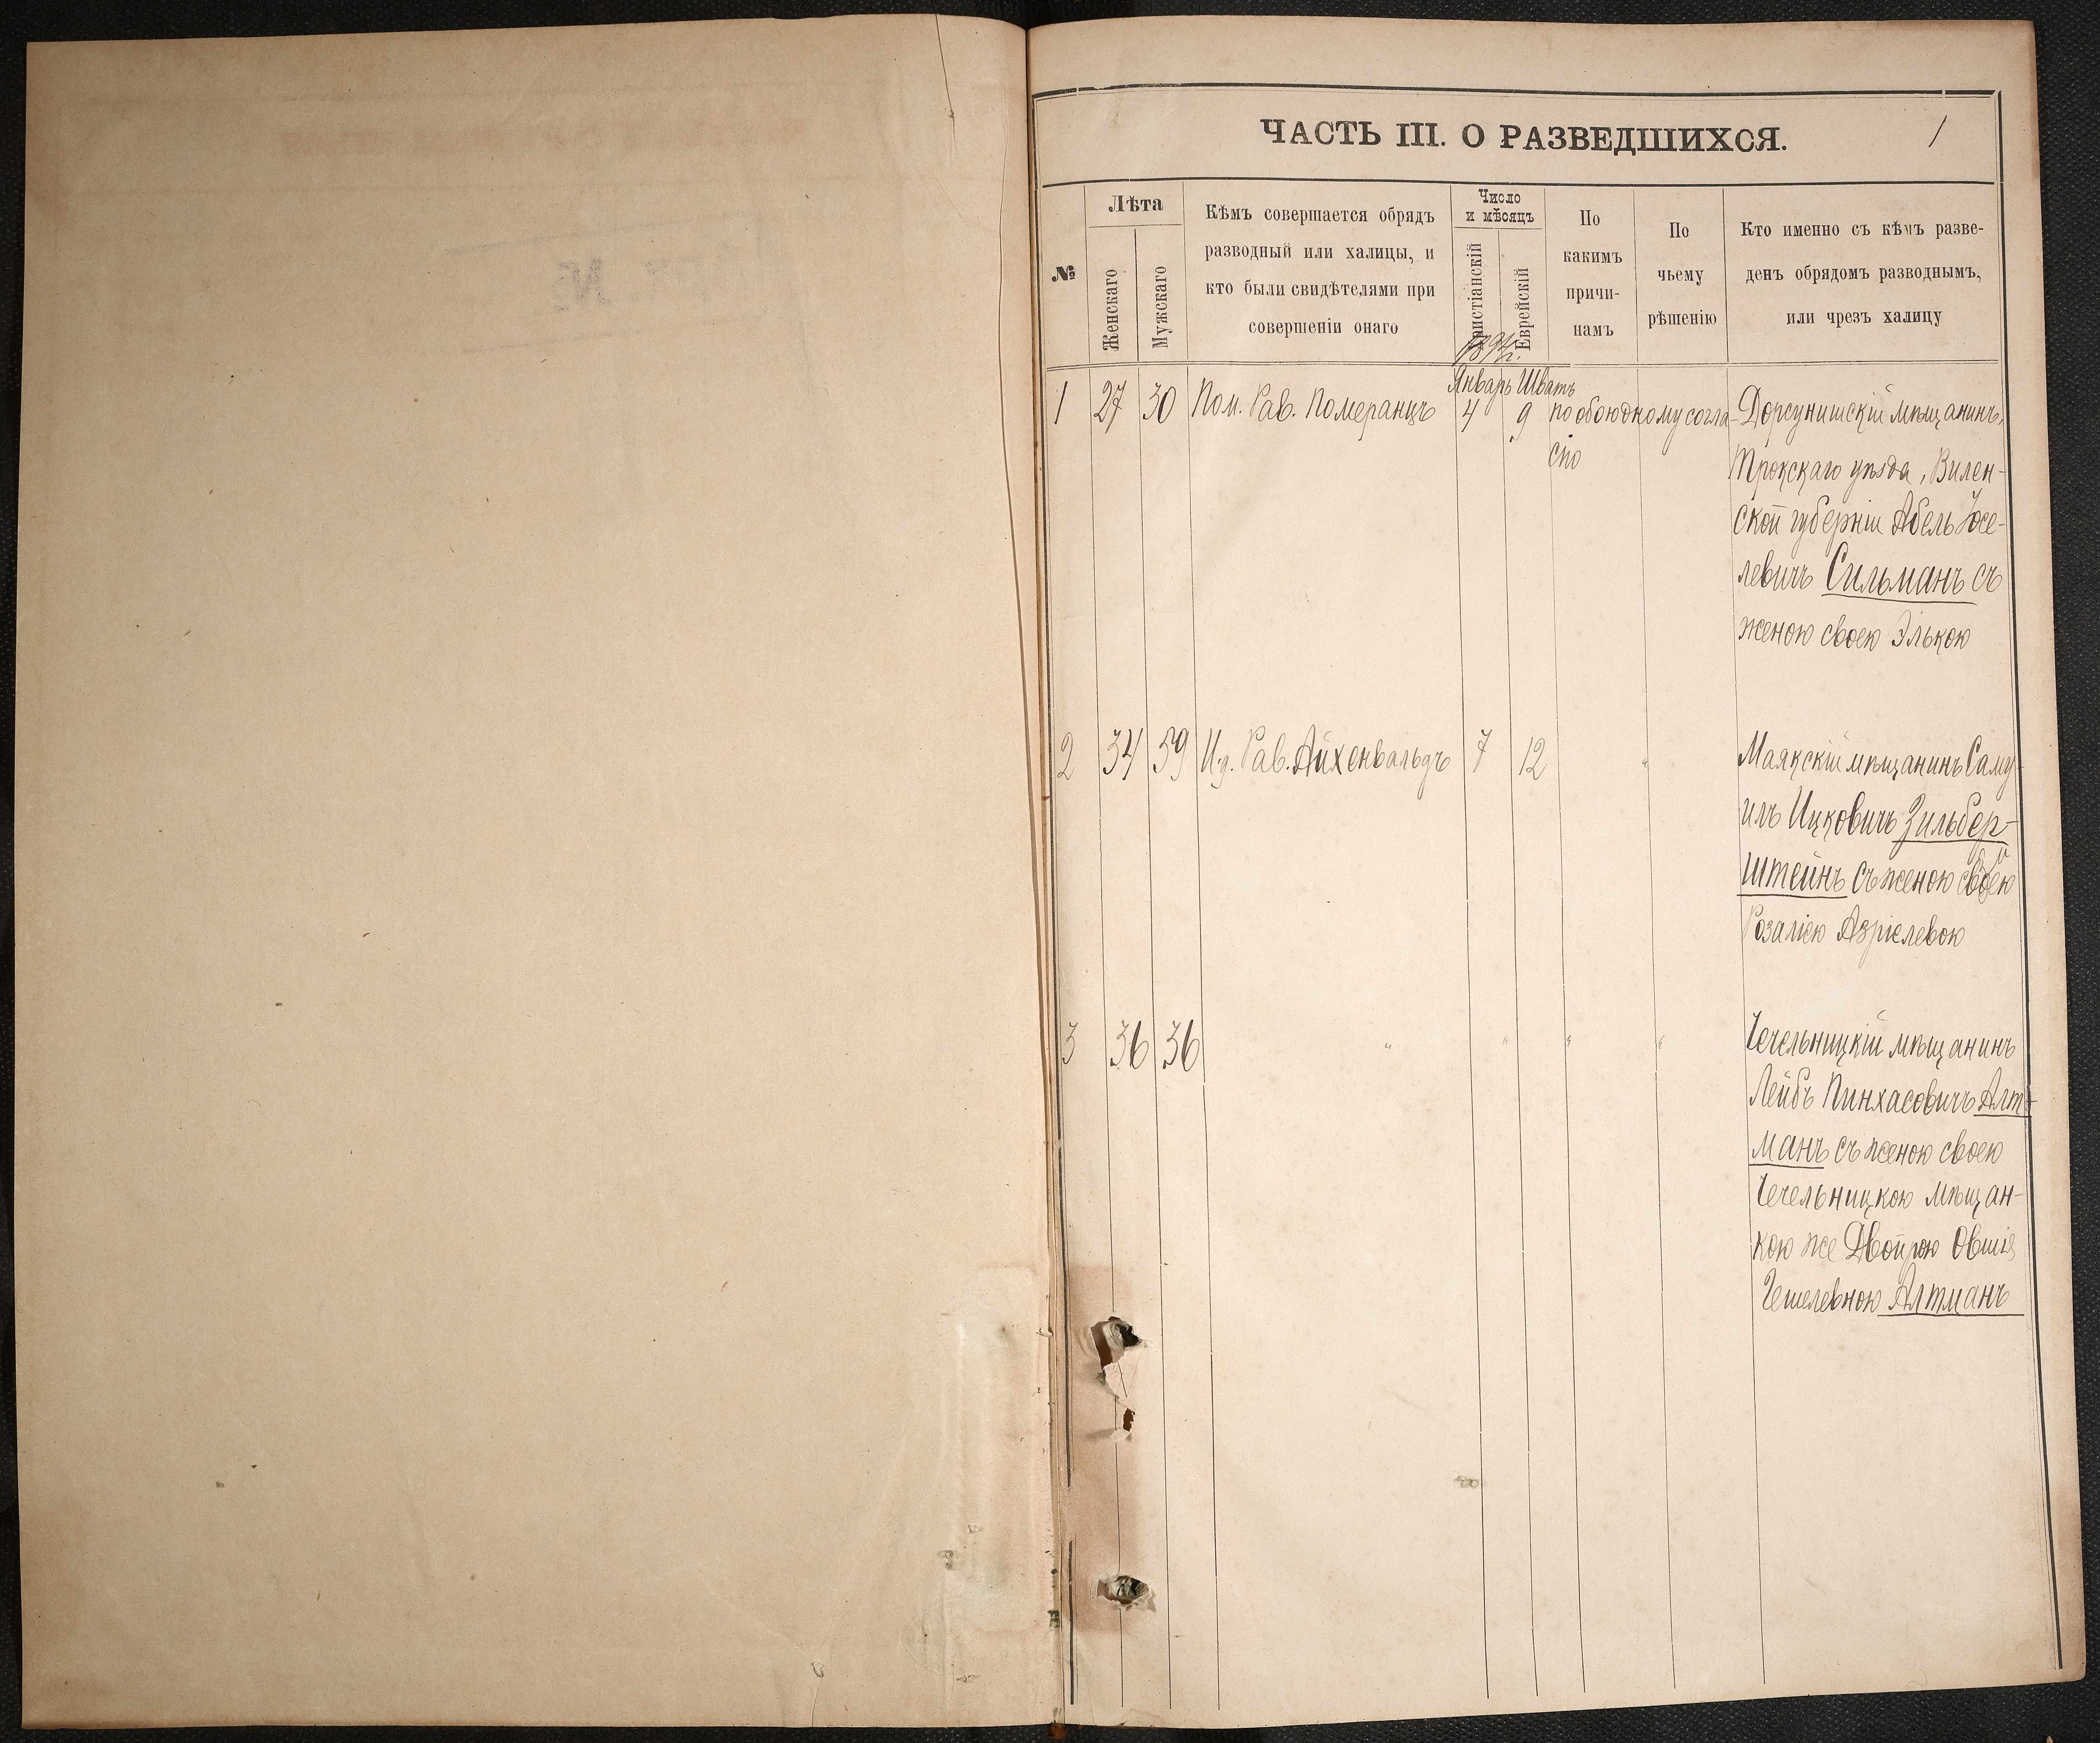 ЧАСТЬ III. О РАЗВЕДШИХСЯ.
1
№
Лѣта
Женскаго
Мужскаго
Кѣмъ совершается обрядъ
разводный или халицы, и
кто были свидѣтелями при
совершеніи онаго
Число
и мѣсяцъ
Христіанскій
Еврейскій
По
какимъ
причи-
намъ
По
чьему
рѣшенію
Кто именно съ кѣмъ разве-
денъ обрядомъ разводнымъ,
или чрезъ халицу
Январь Шватъ
1 27 30 Пом. Рав. Померанцъ 4 9 по обоюдному согла-
сію
Дорсунишскій мѣщанинъ,
Трокскаго уѣзда, Вилен-
ской губерніи Абель Іосе-
левичъ Сильманъ съ
женою своею Элькою
2 34 59 И.д. Рав. Айхенвальдъ 7 12 "
Маякскій мѣщанинъ Саму-
илъ Ицковичъ Зильбер-
штейнъ съ женою своею
Розаліею Азріелевою
3 36 36 " " " "
Чечельницкій мѣщанинъ
Лейбъ Пинхасовичъ Алт-
манъ съ женою своею
Чечельницкою мѣщан-
кою же Двойрою Овшія
Гешелевною Алтманъ